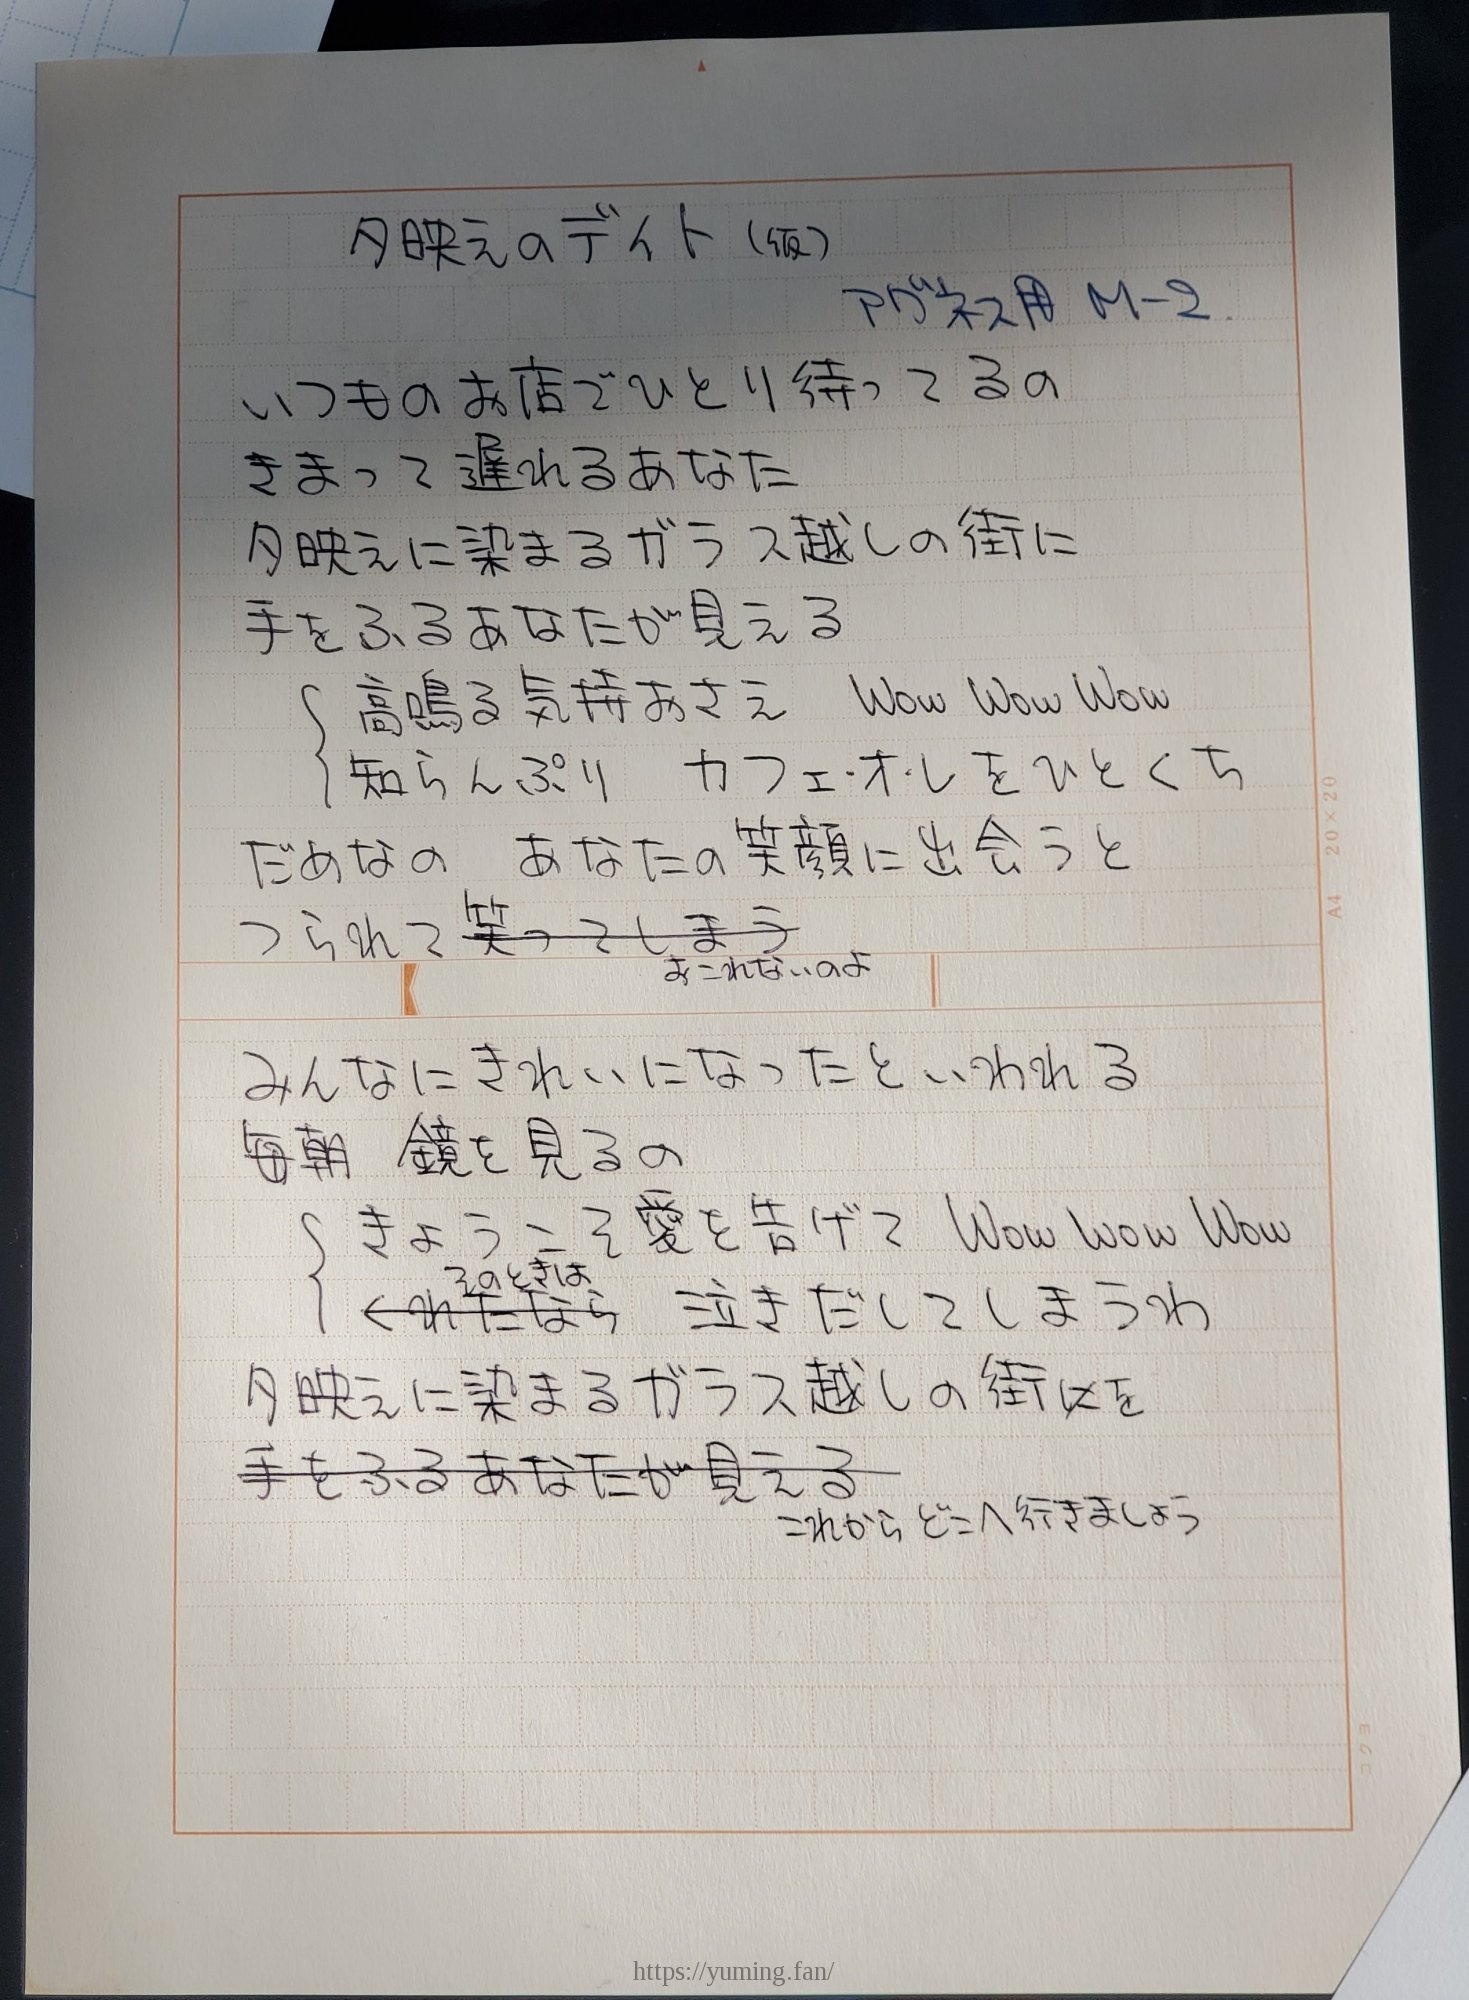 夕映えのデイト（仮）
アグネス用 M-2.
いつものお店でひとり待ってるの
きまって遅れるあなた
夕映えに染まるガラス越しの街に
手をふるあなたが見える
高鳴る気持おさえ Wow Wow Wow
知らんぷり カフェ・オ・レをひとくち
だめなの あなたの笑顔に出会うと
つられて笑ってしまう
おこれないのよ
みんなにきれいになったといわれる
毎朝 鏡を見るの
きょうこそ愛を告げて Wow Wow Wow
そのときは
くれたなら 泣きだしてしまうわ
夕映えに染まるガラス越しの街にを
手をふるあなたが見える
これからどこへ行きましょう
A4 20×20
コクヨ
https://yuming.fan/